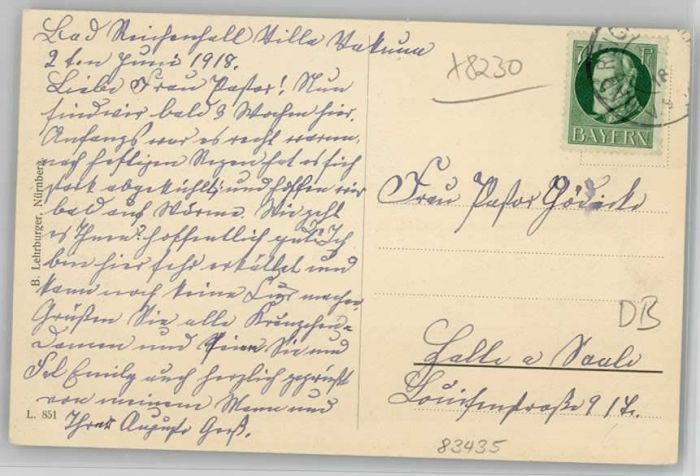 Bad Reichenhall Villa Vakuna
2ten Juni 1918.
Liebe Frau Pastor! Nun
sind wir bald 3 Wochen hier.
Anfangs war es recht warm,
nach heftigen Regen hat es sich
stark abgekühlt, und hoffen wir
bald auf Wärme. Wie geht
es Ihnen? hoffentlich gut. Ich
bin hier sehr erkältet und
kann noch keine Cur machen.
Grüßen Sie alle
Damen und Sie und
Frl Emily auch herzlich gegrüßt
von meinem Mann und
Ihrer Auguste
X8230
BAYERN
Frau Pastor Gödecke
DB
Halle a Saale
Louisenstraße 9 I
B. Lehrburger, Nürnberg
L. 851
83435